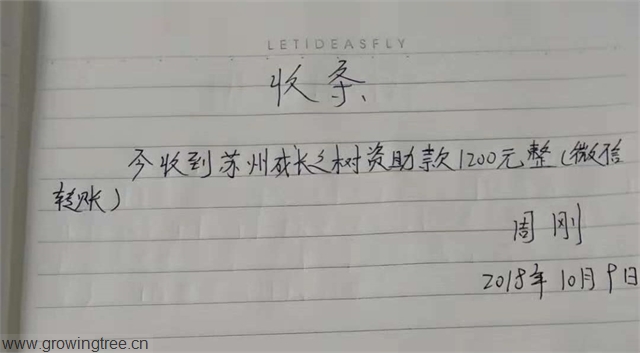 LETIDEASFLY
收条
今收到苏州成长之树资助款1200元整(微信
转账)
周刚
2018年10月9日
www.growingtree.cn